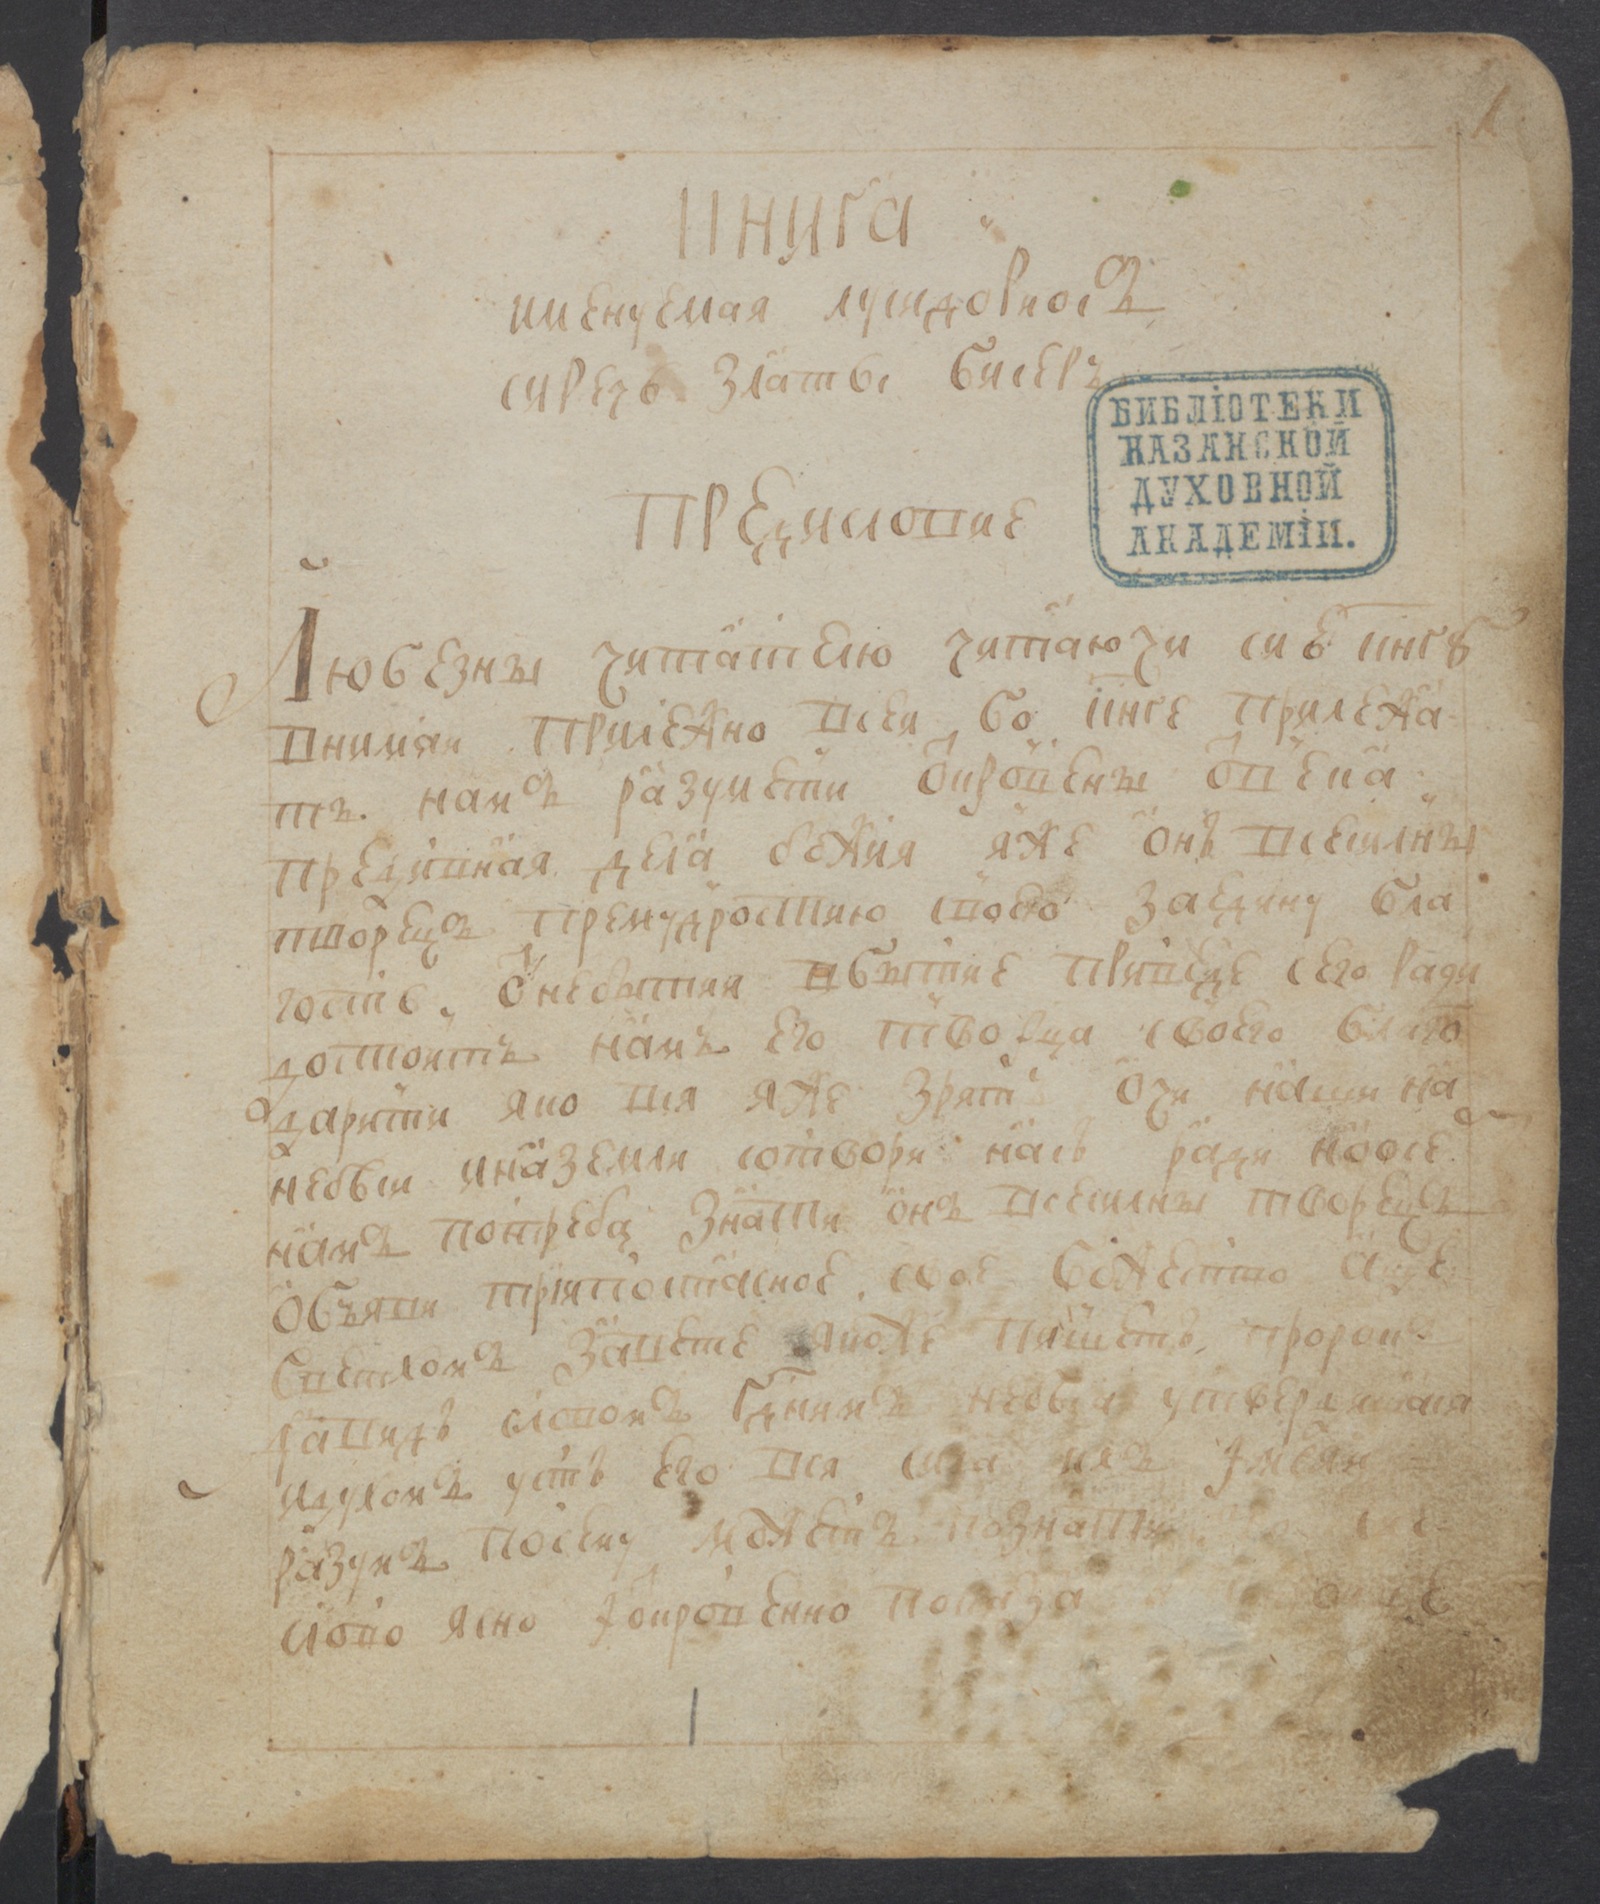 книга
именуемая луцидориосъ
сиречь златы бисеръ
БИБЛІОТЕКИ
КАЗАНСКОЙ
ДУХОВНОЙ
АКАДЕМІИ.
предисловие
Любезны читателю читаючи сиѣ кнгѣ
внимаи прилежно всеи бо кнге прилежа
тъ намъ разумети ѿкровены ѿ века
предивная дела бжия яже онъ всесилны
творецъ премудростию своею заедину бла
гость ѿ небытия в бытие приведе сего ради
достоитъ намъ его творца своего благо
дарити яко вся яже зрятъ очи наши на
небѣси и на земли сотвори насъ ради н
намъ потреба знати онъ всесилны творецъ
объяви триипостасное свое божество
светломъ завете якоже пишетъ пророкъ
давидъ словомъ гднимъ небѣса утвердишася
и духомъ устъ его вся сила ихъ
разумъ по сему можетъ познати
слово ясно ѿкровенно показа